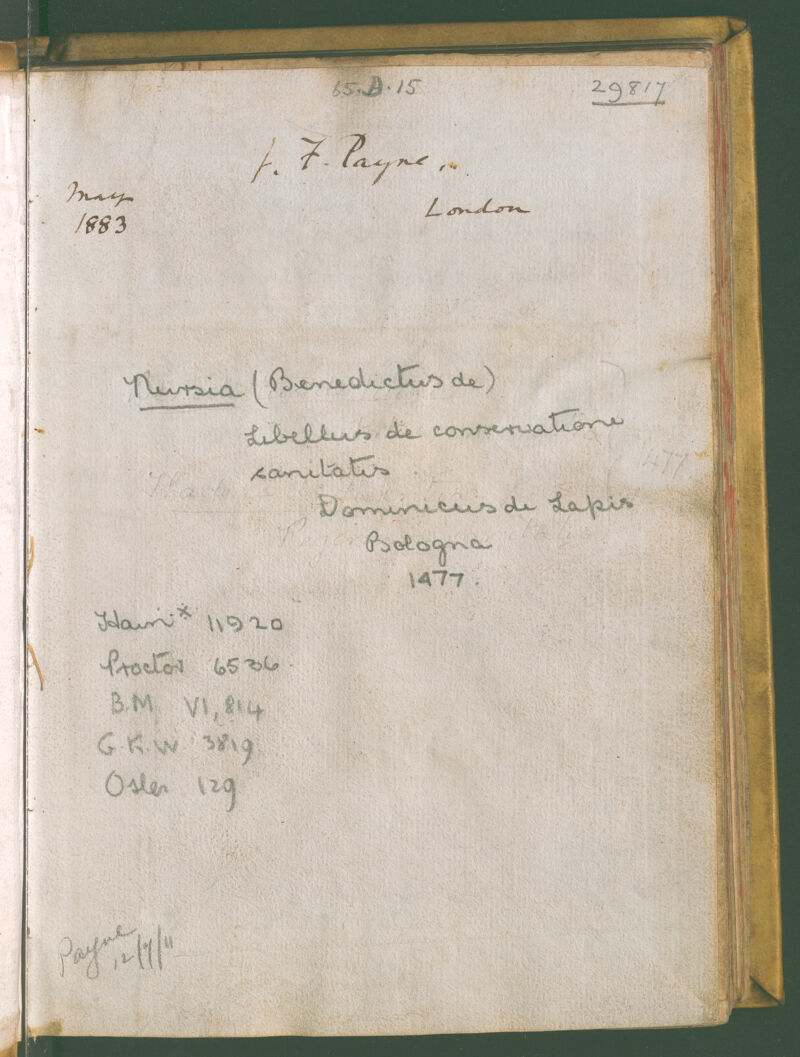 65.D.15
29817
J. F. Payne,
May
1883
London
Nursia (Benedictus de)
Libellus de conservatione
sanitatis
Dominicus de Lapis
Bologna
1477.
Hain* 11920
Proctor 6536.
B.M. VI, 814
G.K.W. 3819
Osler 129
Payne
12/7/11